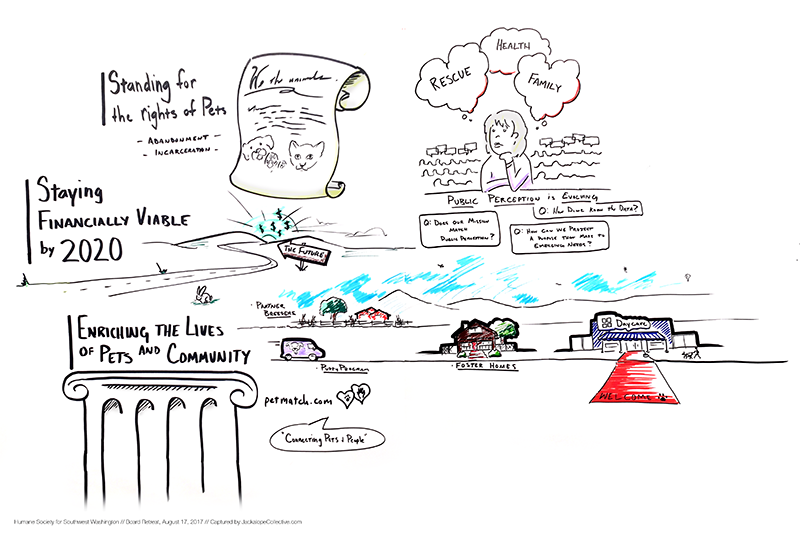 Standing for
the rights of Pets
- ABANDONMENT -
- INCARCERATION -
We the animals
RESCUE
HEALTH
FAMILY
PUBLIC PERCEPTION IS EVOLVING
Q: HOW DO WE KNOW THE DATA?
Q: DOES OUR MISSION
MATCH
PUBLIC PERCEPTION?
Q: HOW CAN WE PROJECT
A PURPOSE THAT MAPS TO
EMERGING NEEDS?
Staying
FINANCIALLY VIABLE
by 2020
$ $ $ $ $
THE FUTURE
ENRICHING THE LIVES
OF PETS AND COMMUNITY
· PARTNER
BREEDERS
· PUPPY PROGRAM
· FOSTER HOMES
DAYCARE
WELCOME
petmatch.com
"CONNECTING PETS & PEOPLE"
Humane Society for Southwest Washington // Board Retreat, August 17, 2017 // Captured by JackalopeCollective.com